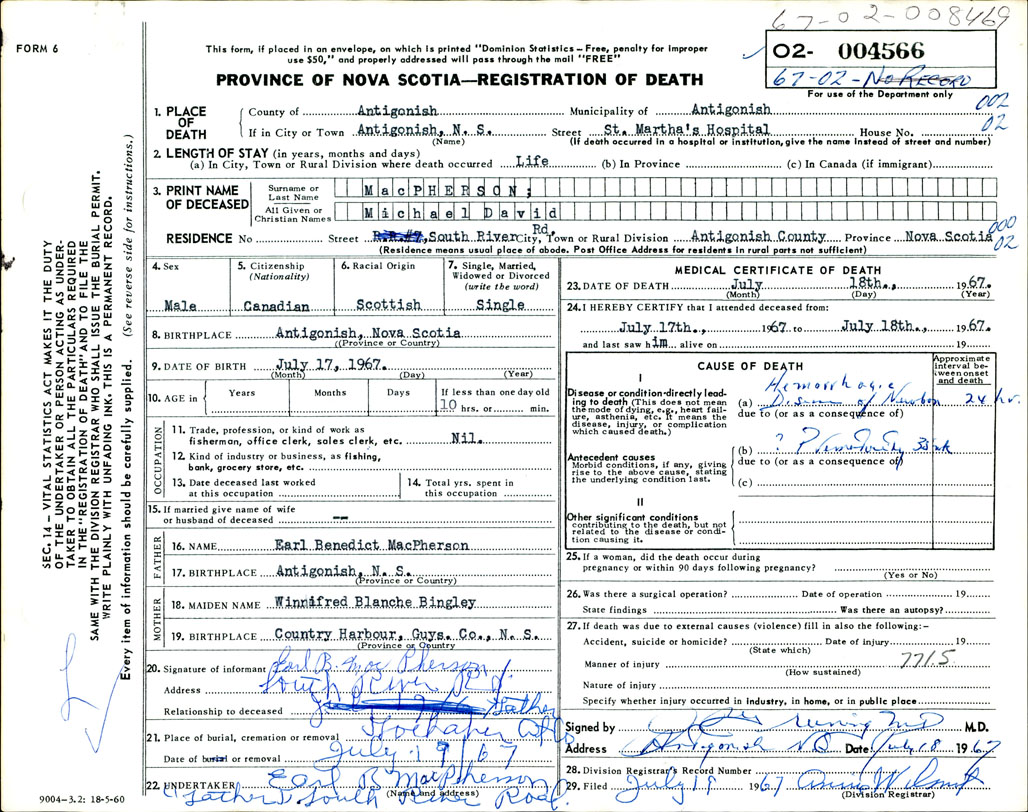 67-02-008469
FORM 6
This form, if placed in an envelope, on which is printed "Dominion Statistics – Free, penalty for improper
use $50," and properly addressed will pass through the mail "FREE"
PROVINCE OF NOVA SCOTIA—REGISTRATION OF DEATH
02- 004566
67-02- No Record
For use of the Department only
002
02
1. PLACE OF DEATH
County of Antigonish Municipality of Antigonish
If in City or Town Antigonish, N. S. Street St. Martha's Hospital House No.
(Name) (If death occurred in a hospital or institution, give the name instead of street and number)
2. LENGTH OF STAY (in years, months and days)
(a) In City, Town or Rural Division where death occurred Life (b) In Province (c) In Canada (if immigrant)
3. PRINT NAME OF DECEASED
Surname or Last Name MacPHERSON,
All Given or Christian Names Michael David
RESIDENCE No Street South River Rd. City, Town or Rural Division Antigonish County Province Nova Scotia
000
02
(Residence means usual place of abode. Post Office Address for residents in rural parts not sufficient)
4. Sex
Male
5. Citizenship (Nationality)
Canadian
6. Racial Origin
Scottish
7. Single, Married, Widowed or Divorced (write the word)
Single
8. BIRTHPLACE Antigonish, Nova Scotia
(Province or Country)
9. DATE OF BIRTH July 17, 1967.
(Month) (Day) (Year)
10. AGE in Years Months Days If less than one day old
10 hrs. or min.
OCCUPATION
11. Trade, profession, or kind of work as
fisherman, office clerk, sales clerk, etc. Nil.
12. Kind of industry or business, as fishing,
bank, grocery store, etc.
13. Date deceased last worked
at this occupation
14. Total yrs. spent in
this occupation
15. If married give name of wife
or husband of deceased --
FATHER
16. NAME Earl Benedict MacPherson
17. BIRTHPLACE Antigonish, N. S.
(Province or Country)
MOTHER
18. MAIDEN NAME Winnifred Blanche Bingley
19. BIRTHPLACE Country Harbour, Guys. Co., N. S.
(Province or Country)
20. Signature of informant Earl B. MacPherson
Address South River Rd.
Relationship to deceased Father
21. Place of burial, cremation or removal
Date of burial or removal July 19/67
22. UNDERTAKER Earl B MacPherson
(Name and address)
(Father) South River Road
9004–3.2: 18-5-60
MEDICAL CERTIFICATE OF DEATH
23. DATE OF DEATH July 18th., 1967.
(Month) (Day) (Year)
24. I HEREBY CERTIFY that I attended deceased from:
July 17th., 1967 to July 18th., 1967.
and last saw him alive on 19
CAUSE OF DEATH
Approximate interval between onset and death
I
Disease or condition directly leading to death (This does not mean the mode of dying, e.g., heart failure, asthenia, etc. It means the disease, injury, or complication which caused death.)
(a) Hemorrhagic
Disease of Newborn 24 hr.
due to (or as a consequence of)
Antecedent causes
Morbid conditions, if any, giving rise to the above cause, stating the underlying condition last.
(b) ?
due to (or as a consequence of)
(c)
II
Other significant conditions
contributing to the death, but not related to the disease or condition causing it.
25. If a woman, did the death occur during
pregnancy or within 90 days following pregnancy?
(Yes or No)
26. Was there a surgical operation? Date of operation 19
State findings Was there an autopsy?
27. If death was due to external causes (violence) fill in also the following:–
Accident, suicide or homicide? Date of injury 19
(State which)
Manner of injury 771.5
(How sustained)
Nature of injury
Specify whether injury occurred in industry, in home, or in public place
Signed by M.D. M.D.
Address Antigonish N.S. Date July 18 1967
28. Division Registrar's Record Number
29. Filed July 19 1967
(Division Registrar)
SEC. 14 – VITAL STATISTICS ACT MAKES IT THE DUTY
OF THE UNDERTAKER OR PERSON ACTING AS UNDER-
TAKER TO OBTAIN ALL THE PARTICULARS REQUIRED
IN THE "REGISTRATION OF DEATH" AND TO FILE THE
SAME WITH THE DIVISION REGISTRAR WHO SHALL ISSUE THE BURIAL PERMIT.
WRITE PLAINLY WITH UNFADING INK. THIS IS A PERMANENT RECORD.
Every item of information should be carefully supplied. (See reverse side for instructions.)